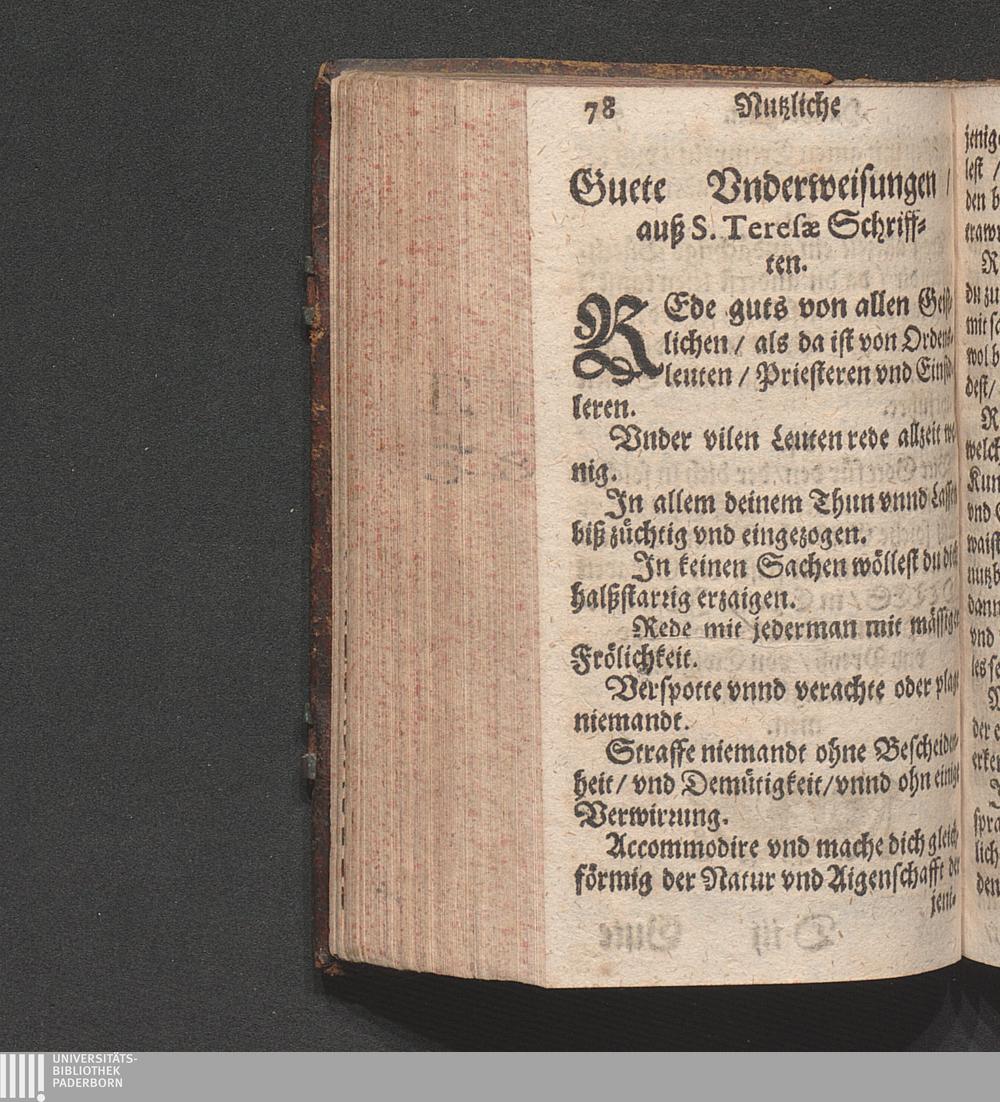 78 Nutzliche
Guete Vnderweisungen /
auß S. Teresæ Schriff-
ten.
REde guts von allen Geist-
lichen / als da ist von Ordens-
leuten / Priesteren vnd Einsid-
leren.
Vnder vilen Leuten rede allzeit we-
nig.
In allem deinem Thun vnnd Lassen
biß züchtig vnd eingezogen.
In keinen Sachen wöllest du dich
halßstarrig erzaigen.
Rede mit jederman mit mässiger
Frölichkeit.
Verspotte vnnd verachte oder plage
niemandt.
Straffe niemandt ohne Bescheiden-
heit / vnd Demütigkeit / vnnd ohn einige
Verwirrung.
Accommodire vnd mache dich gleich-
förmig der Natur vnd Aigenschafft der
jeni-
jenig
lest /
den
R
du zu
wol
dest /
R
welch
Kun
vnd
waist
nutzb
dann
vnd
der
spra
lich
den
UNIVERSITÄTS-
BIBLIOTHEK
PADERBORN